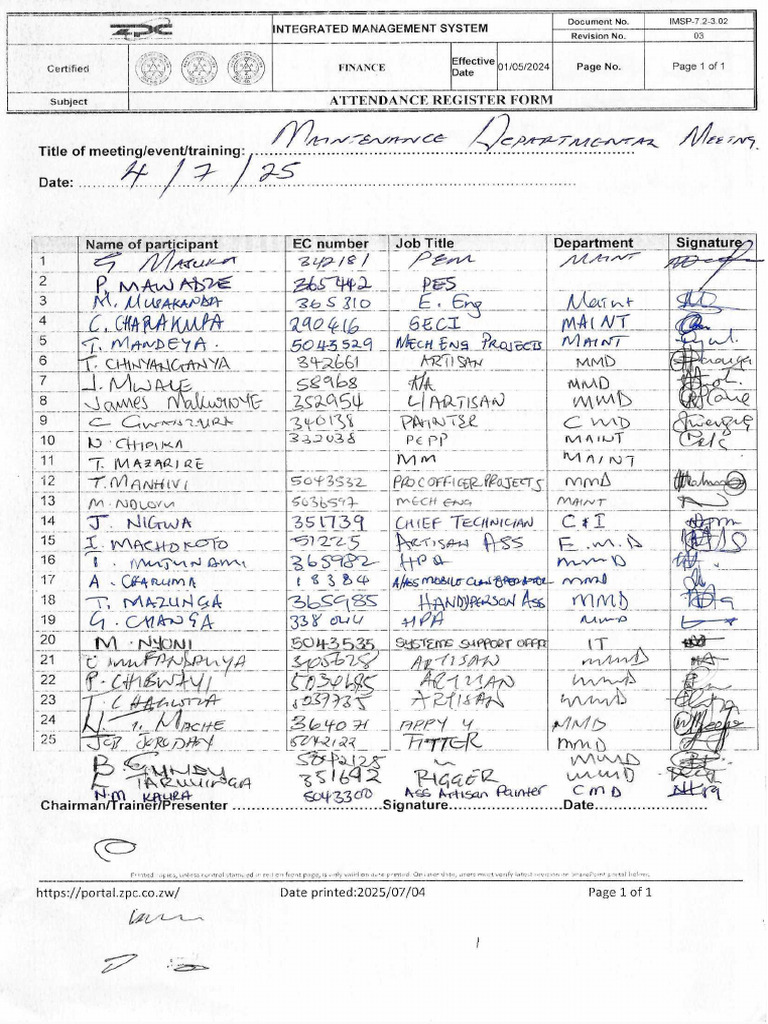 zpc
INTEGRATED MANAGEMENT SYSTEM
Document No. IMSP-7.2-3.02
Revision No. 03
Certified FINANCE Effective Date 01/05/2024 Page No. Page 1 of 1
Subject ATTENDANCE REGISTER FORM
Title of meeting/event/training: MAINTENANCE DEPARTMENTAL MEETING.
Date: 4/7/25
Name of participant EC number Job Title Department Signature
1 G MASUKA 342181 PEM MAINT
2 P. MAWADZE 365442 PES
3 M. MUSAKANDA 365310 E. Eng Maint
4 C. CHARAKUPA 290616 SECI MAINT
5 T. MANDEYA. 5043529 MECH ENG PROJECTS MAINT
6 T. CHINYANGANYA 342661 ARTISAN MMD
7 J. MWALE 58968 MMD
8 James 352954 L/ARTISAN MMD
9 C 340138 PAINTER CMD
10 N. CHIPIKA 332038 PCPP MAINT
11 T. MAZARIRE MM MAINT
12 T. MANHIVI 5043532 PROC OFFICER PROJECTS MMD
13 M. NDLOVU 5036597 MECH ENG MAINT
14 J. NIGWA 351739 CHIEF TECHNICIAN C&I
15 I. MACHOKOTO 51225 ARTISAN ASS E.M.D
16 I. MUJURAMI 365982 HPA MMD
17 A. CHARUMA 18384 MMD
18 T. MAZUNGA 365985 HANDYPERSON ASS MMD
19 G. CHANGA 338044 HPA MMD
20 M. NYONI 5043535 SYSTEMS SUPPORT OFFR IT
21 ARTISAN MMD
22 P. 5030685 ARTISAN MMD
23 T. ARTISAN MMD
24 MACHE 364071 APPY 4 MMD
25 JOB 5042122 FITTER MMD
B. GUNDY 5842128 " MMD
TARUVINGA 351692 RIGGER MMD
N.M KAURA 5043300 ASS Artisan Painter CMD
Chairman/Trainer/Presenter Signature Date
Printed copies, unless control stamped in red on front page, is only valid on date printed.
https://portal.zpc.co.zw/ Date printed:2025/07/04 Page 1 of 1